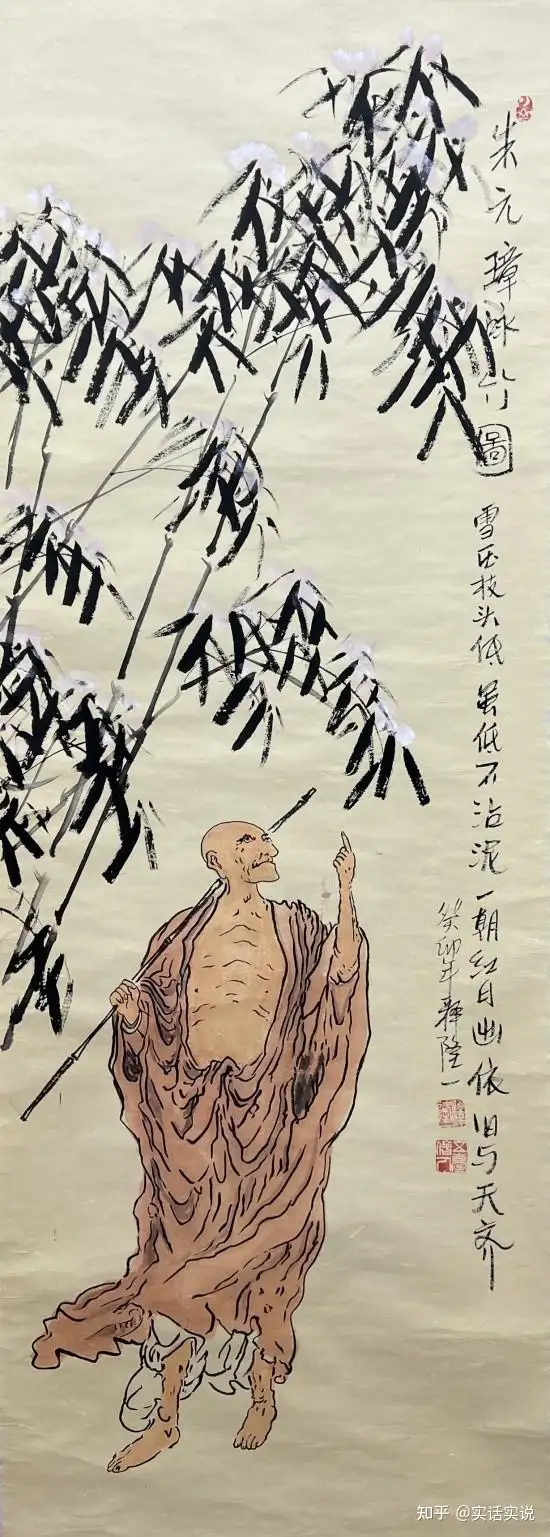 朱元璋咏竹圖
雪压枝头低虽低不沾泥一朝红日出依旧与天齐
癸卯年释隆一
知乎 @实话实说